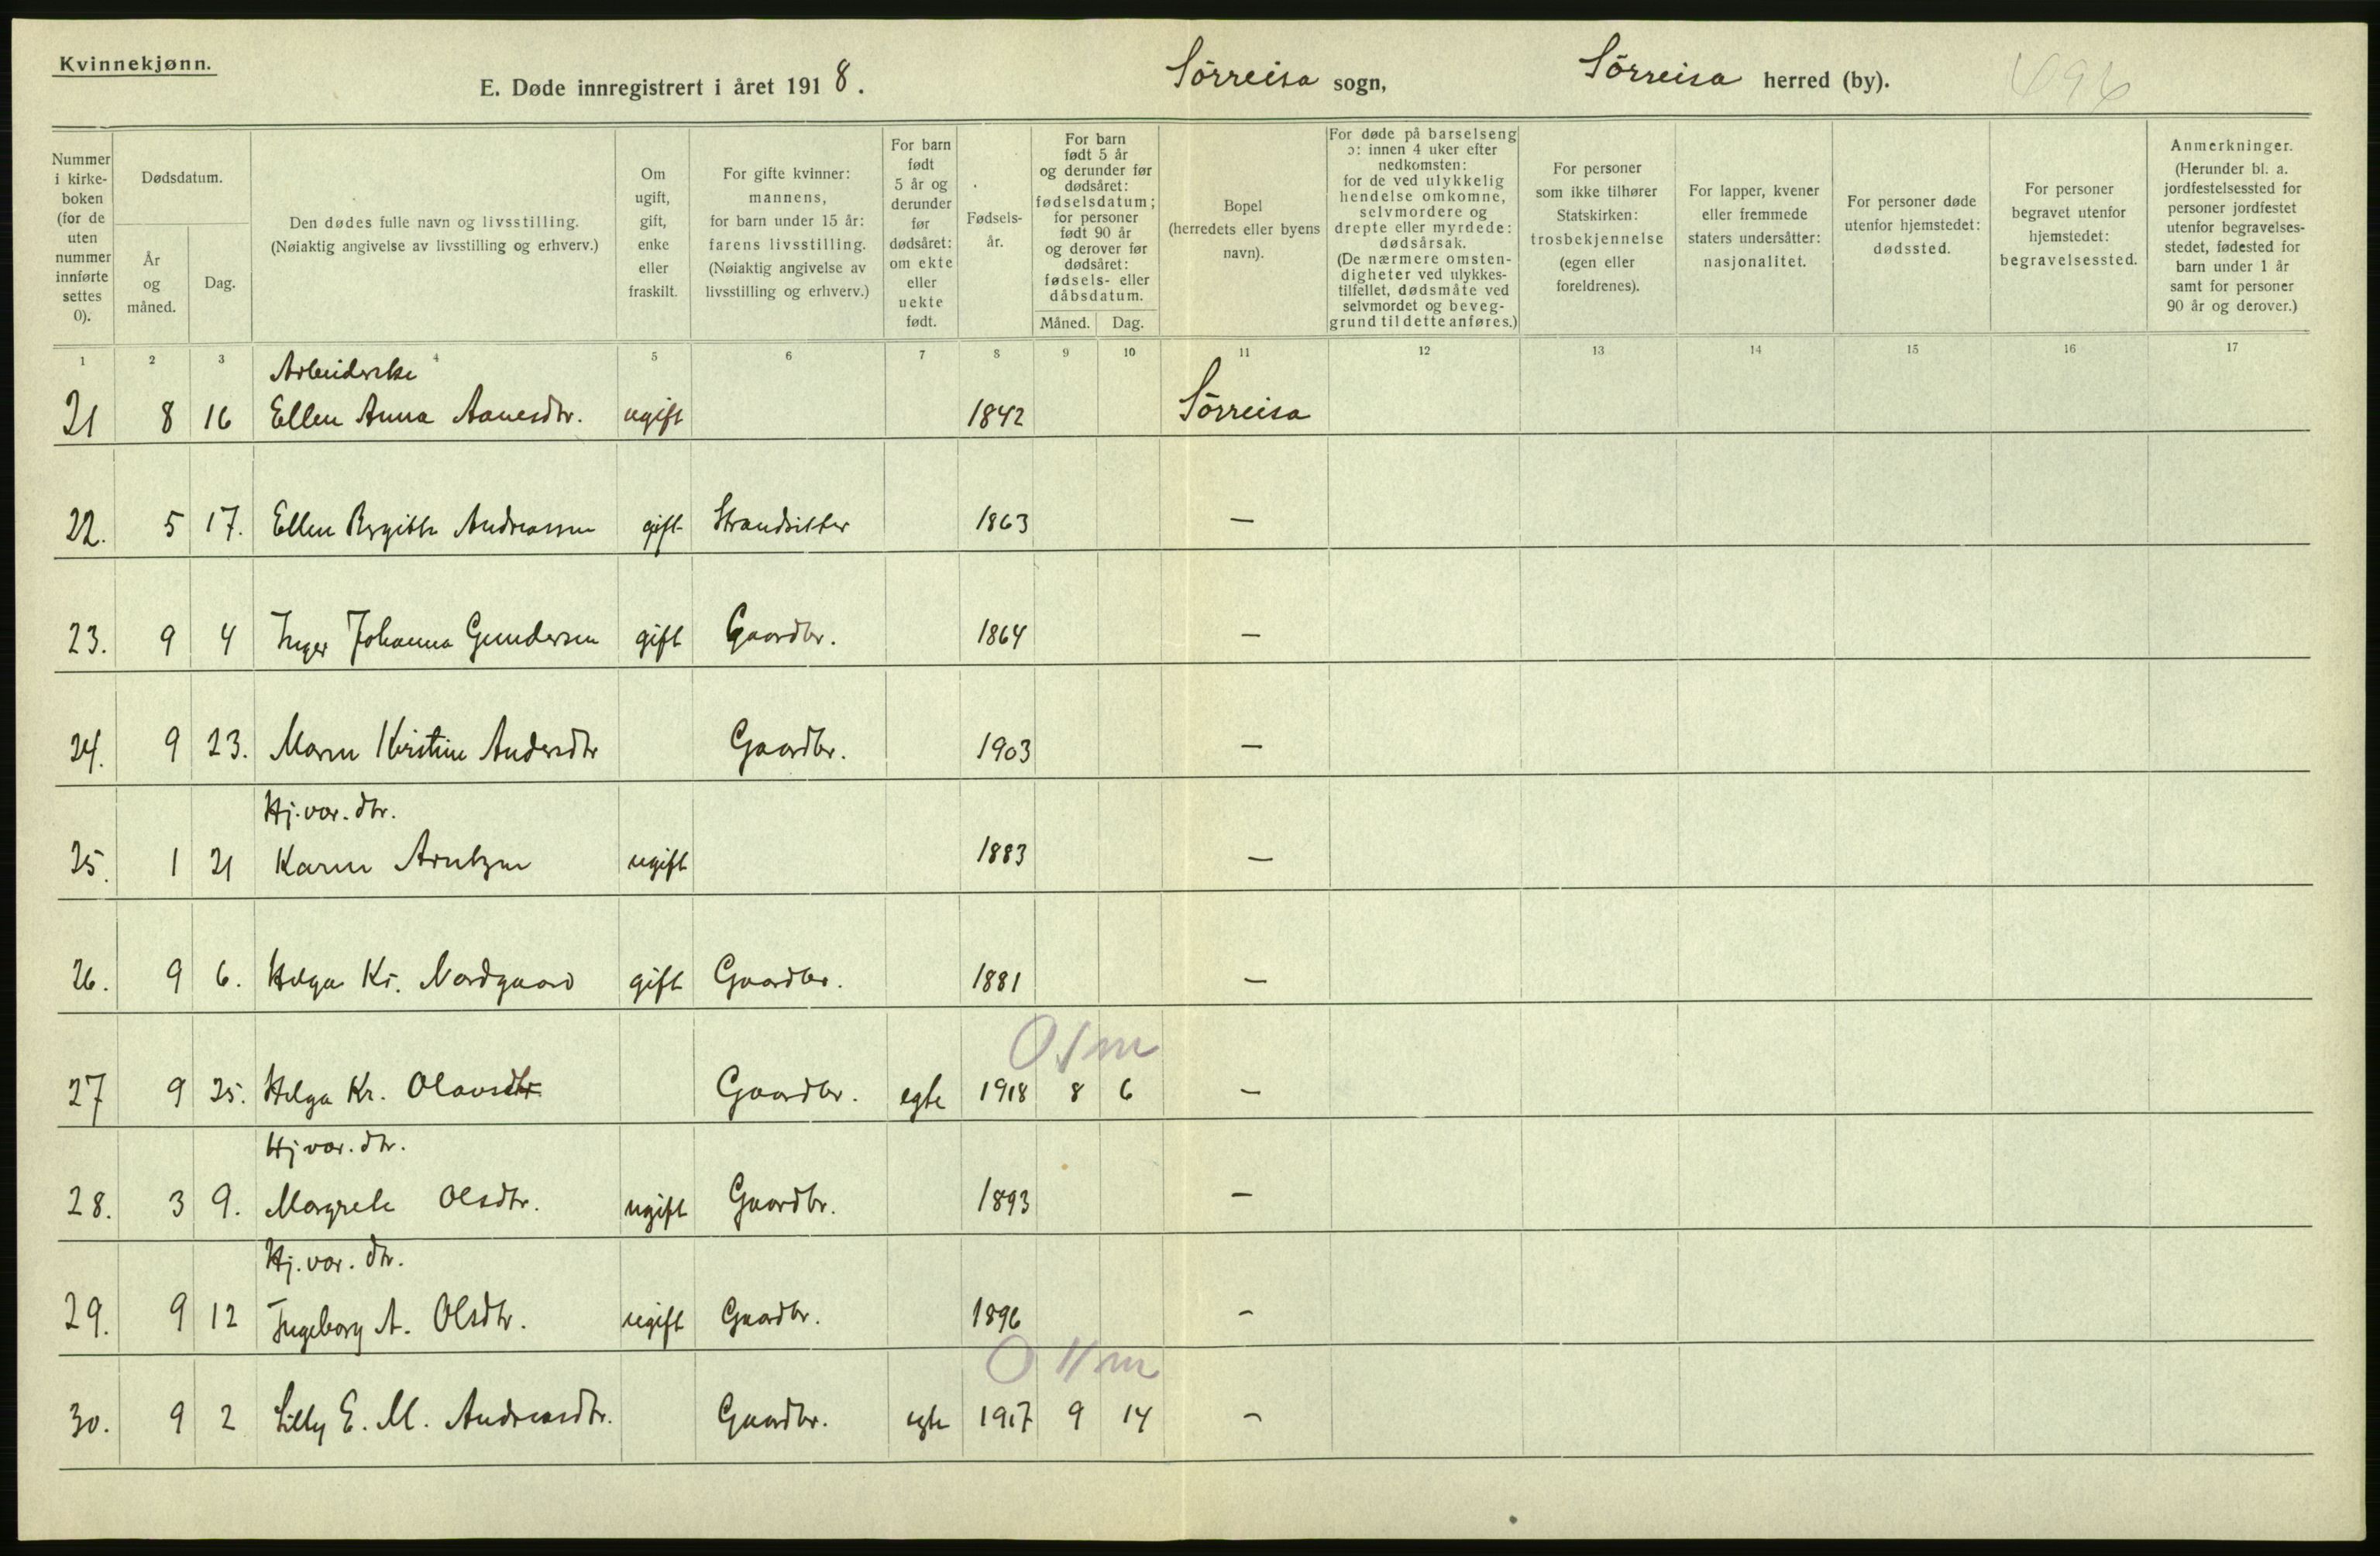 Kvinnekjønn.
E. Døde innregistrert i året 1918. Sörreisa sogn, Sörreisa herred (by). 496
Nummer i kirkeboken (for de uten nummer innførte settes 0).
Dødsdatum.
År og måned.
Dag.
Den dødes fulle navn og livsstilling.
(Nøiaktig angivelse av livsstilling og erhverv.)
Om ugift, gift, enke eller fraskilt.
For gifte kvinner: mannens, for barn under 15 år: farens livsstilling. (Nøiaktig angivelse av livsstilling og erhverv.)
For barn født 5 år og derunder før dødsåret: om ekte eller uekte født.
Fødselsår.
For barn født 5 år og derunder før dødsåret: fødselsdatum; for personer født 90 år og derover før dødsåret: fødsels- eller dåbsdatum.
Måned. Dag.
Bopel (herredets eller byens navn).
For døde på barselseng ɔ: innen 4 uker efter nedkomsten: for de ved ulykkelig hendelse omkomne, selvmordere og drepte eller myrdede: dødsårsak. (De nærmere omstendigheter ved ulykkestilfellet, dødsmåte ved selvmordet og beveggrund til dette anføres.)
For personer som ikke tilhører Statskirken: trosbekjennelse (egen eller foreldrenes).
For lapper, kvener eller fremmede staters undersåtter: nasjonalitet.
For personer døde utenfor hjemstedet: dødssted.
For personer begravet utenfor hjemstedet: begravelsessted.
Anmerkninger. (Herunder bl. a. jordfestelsessted for personer jordfestet utenfor begravelsesstedet, fødested for barn under 1 år samt for personer 90 år og derover.)
1 2 3 4 5 6 7 8 9 10 11 12 13 14 15 16 17
Arbeiderske
21 8 16 Ellen Anna Aanesdtr. ugift 1842 Sörreisa
22. 5 17. Ellen Bergitte Andreassen gift Strandsitter 1863 —
23. 9 4 Inger Johanna Gundersen gift Gaardbr. 1864 —
24. 9 23. Maren Kristine Andersdtr Gaardbr. 1903 —
Hj. var. dtr.
25. 1 21 Karen Arntzen ugift 1883 —
26. 9 6. Helga Kr. Nordgaard gift Gaardbr. 1881 —
0 1 m
27 9 25. Helga Kr. Olavsdtr Gaardbr. egte 1918 8 6 —
Hj var. dtr.
28. 3 9. Margrete Olsdtr. ugift Gaardbr. 1893 —
Hj. var. dtr.
29. 9 12 Ingeborg A. Olsdtr. ugift Gaardbr. 1896 —
0 11 m
30. 9 2 Lilly E. M. Andreasdtr. Gaardbr. egte 1917 9 14 —